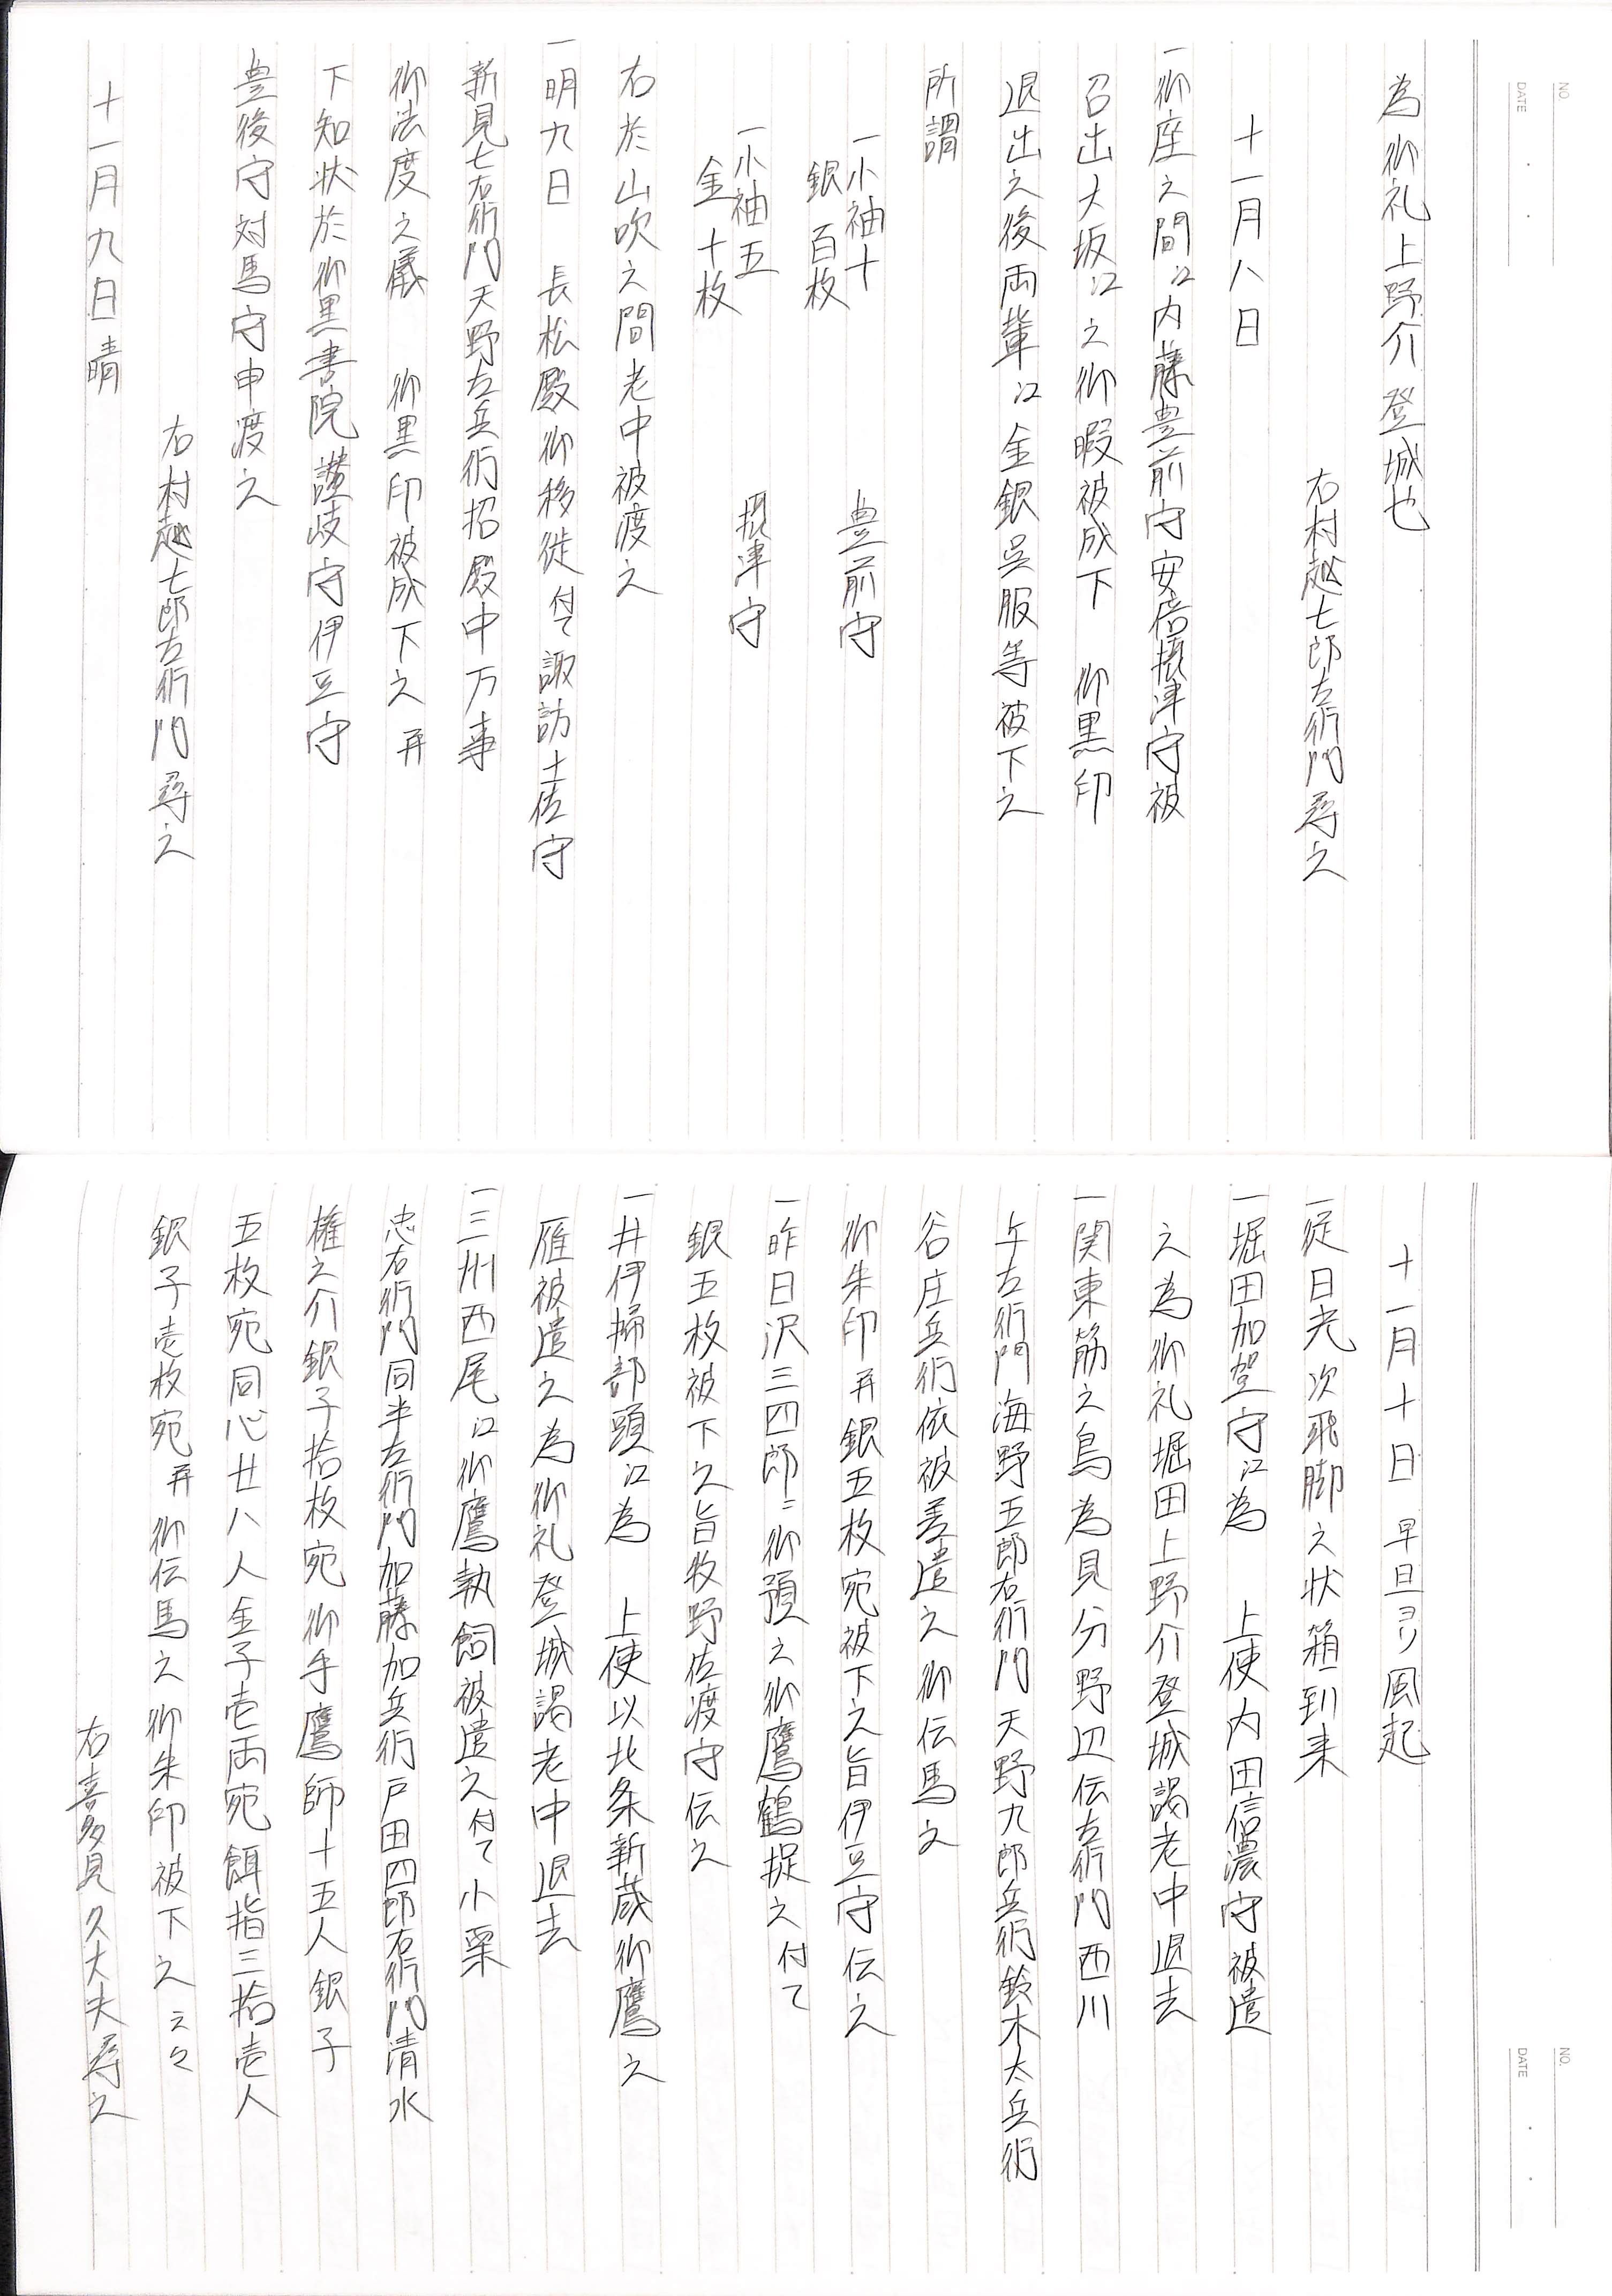 NO.
DATE
為御礼上野介登城也
右村越七郎左衛門尋之
十一月八日
一御座之間江内藤豊前守安倍摂津守被
召出大坂江之御暇被成下 御黒印
退出之後両輩江金銀呉服等被下之
所謂
一小袖十
銀百枚 豊前守
一小袖五
金十枚 摂津守
右於山吹之間老中被渡之
一明九日 長松殿御移徙付て諏訪土佐守
新見七右衛門天野左兵衛招殿中万事
御法度之儀 御黒印被成下之并
下知状於御黒書院讃岐守伊豆守
豊後守対馬守申渡之
右村越七郎左衛門尋之
十一月九日晴
NO.
DATE
十一月十日 早旦ヨリ風起
一従日光次飛脚之状箱到来
一堀田加賀守江為 上使内田信濃守被遣
之為御礼堀田上野介登城謁老中退去
一関東筋之鳥為見分野辺伝左衛門西川
与左衛門海野五郎右衛門天野九郎兵衛鈴木太兵衛
谷庄兵衛依被差遣之御伝馬之
御朱印并銀五枚宛被下之旨伊豆守伝之
一昨日沢三四郎ニ御預之御鷹鶴捉之付て
銀五枚被下之旨牧野佐渡守伝之
一井伊掃部頭江為 上使以北条新蔵御鷹之
雁被遣之為御礼登城謁老中退去
一三州西尾江御鷹執飼被遣之付て小栗
忠右衛門同半左衛門加藤加兵衛戸田四郎右衛門清水
権之介銀子拾枚宛御手鷹師十五人銀子
五枚宛同心廿八人金子壱両宛餌指三拾壱人
銀子壱枚宛并御伝馬之御朱印被下之云々
右喜多見久大夫尋之